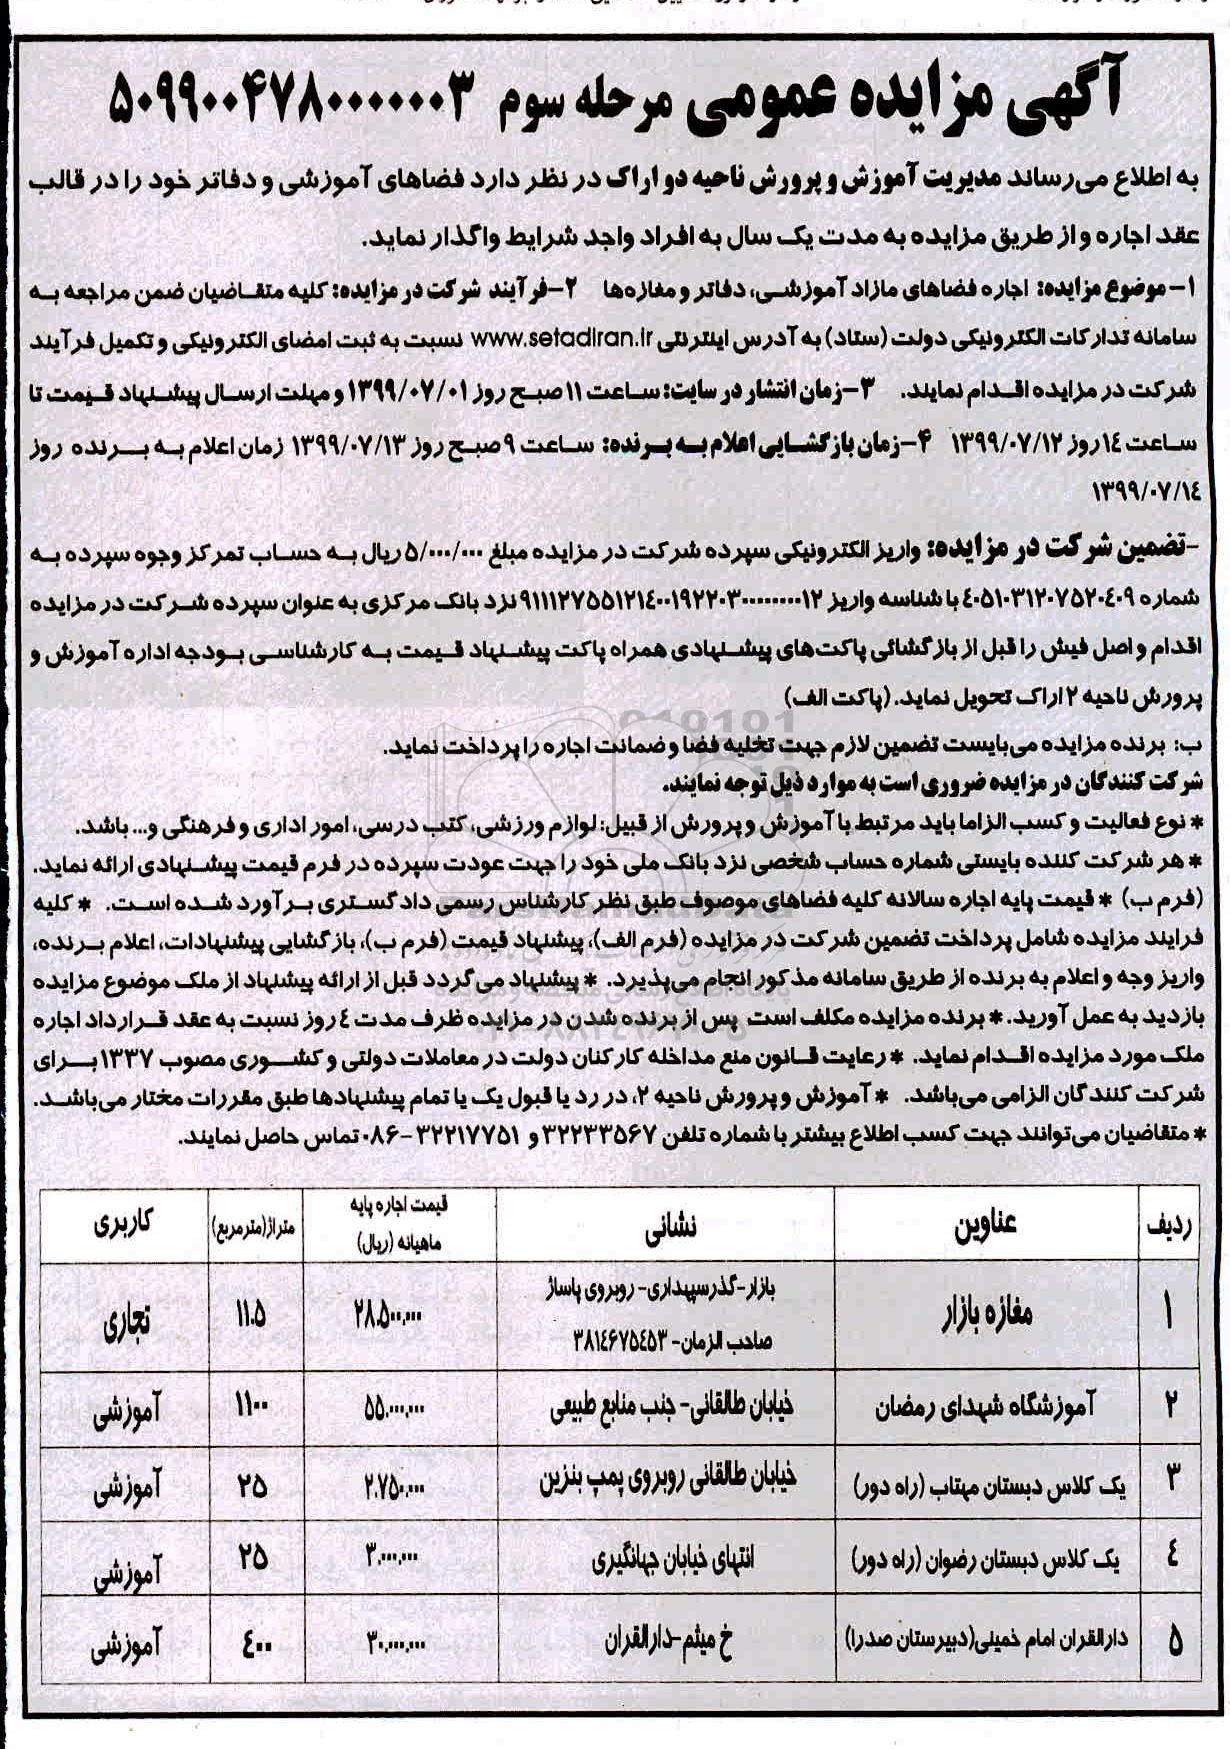 آگهی مزایده عمومی مرحله سوم ۵۰۹۹۰۰۴۷۸۰۰۰۰۰۰۳
به اطلاع می‌رساند مدیریت آموزش و پرورش ناحیه دو اراک در نظر دارد فضاهای آموزشی و دفاتر خود را در قالب
عقد اجاره و از طریق مزایده به مدت یک سال به افراد واجد شرایط واگذار نماید.
۱- موضوع مزایده: اجاره فضاهای مازاد آموزشی، دفاتر و مغازه‌ها ۲-فرآیند شرکت در مزایده: کلیه متقاضیان ضمن مراجعه به
سامانه تدارکات الکترونیکی دولت (ستاد) به آدرس اینترنتی www.setadiran.ir نسبت به ثبت امضای الکترونیکی و تکمیل فرآیند
شرکت در مزایده اقدام نمایند. ۳-زمان انتشار در سایت: ساعت ۱۱ صبح روز ۱۳۹۹/۰۷/۰۱ و مهلت ارسال پیشنهاد قیمت تا
ساعت ۱۴ روز ۱۳۹۹/۰۷/۱۲ ۴-زمان بازگشایی اعلام به برنده: ساعت ۹ صبح روز ۱۳۹۹/۰۷/۱۳ زمان اعلام به برنده روز
۱۳۹۹/۰۷/۱۴
-تضمین شرکت در مزایده: واریز الکترونیکی سپرده شرکت در مزایده مبلغ ۵/۰۰۰/۰۰۰ ریال به حساب تمرکز وجوه سپرده به
شماره ۴۰۵۱۰۳۱۲۰۷۵۲۰۴۰۹ با شناسه واریز نزد بانک مرکزی به عنوان سپرده شرکت در مزایده
اقدام و اصل فیش را قبل از بازگشائی پاکت‌های پیشنهادی همراه پاکت پیشنهاد قیمت به کارشناسی بودجه اداره آموزش و
پرورش ناحیه ۲ اراک تحویل نماید. (پاکت الف)
ب: برنده مزایده می‌بایست تضمین لازم جهت تخلیه فضا و ضمانت اجاره را پرداخت نماید.
شرکت کنندگان در مزایده ضروری است به موارد ذیل توجه نمایند.
* نوع فعالیت و کسب الزاما باید مرتبط با آموزش و پرورش از قبیل: لوازم ورزشی، کتب درسی، امور اداری و فرهنگی و... باشد.
* هر شرکت کننده بایستی شماره حساب شخصی نزد بانک ملی خود را جهت عودت سپرده در فرم قیمت پیشنهادی ارائه نماید.
(فرم ب) * قیمت پایه اجاره سالانه کلیه فضاهای موصوف طبق نظر کارشناس رسمی دادگستری برآورد شده است. * کلیه
فرایند مزایده شامل پرداخت تضمین شرکت در مزایده (فرم الف)، پیشنهاد قیمت (فرم ب)، بازگشایی پیشنهادات، اعلام برنده،
واریز وجه و اعلام به برنده از طریق سامانه مذکور انجام می‌پذیرد. * پیشنهاد می‌گردد قبل از ارائه پیشنهاد از ملک موضوع مزایده
بازدید به عمل آورید. * برنده مزایده مکلف است پس از برنده شدن در مزایده ظرف مدت ۴ روز نسبت به عقد قرارداد اجاره
ملک مورد مزایده اقدام نماید. * رعایت قانون منع مداخله کارکنان دولت در معاملات دولتی و کشوری مصوب ۱۳۳۷ برای
شرکت کنندگان الزامی می‌باشد. * آموزش و پرورش ناحیه ۲، در رد یا قبول یک یا تمام پیشنهادها طبق مقررات مختار می‌باشد.
* متقاضیان می‌توانند جهت کسب اطلاع بیشتر با شماره تلفن ۳۲۲۳۳۵۶۷ و ۳۲۲۱۷۷۵۱-۰۸۶ تماس حاصل نمایند.
ردیف عناوین نشانی قیمت اجاره پایه ماهیانه (ریال) متراژ(مترمربع) کاربری
۱ مغازه بازار بازار-گذرسپهداری- روبروی پاساژ صاحب الزمان- ۳۸۱۴۶۷۵۴۵۳ ۲۸.۵۰۰.۰۰۰ ۱۱.۵ تجاری
۲ آموزشگاه شهدای رمضان خیابان طالقانی- جنب منابع طبیعی ۵۵.۰۰۰.۰۰۰ ۱۱۰۰ آموزشی
۳ یک کلاس دبستان مهتاب (راه دور) خیابان طالقانی روبروی پمپ بنزین ۲.۷۵۰.۰۰۰ ۲۵ آموزشی
۴ یک کلاس دبستان رضوان (راه دور) انتهای خیابان جهانگیری ۳.۰۰۰.۰۰۰ ۲۵ آموزشی
۵ دارالقران امام خمینی(دبیرستان صدرا) خ میثم-دارالقران ۳۰.۰۰۰.۰۰۰ ۴۰۰ آموزشی